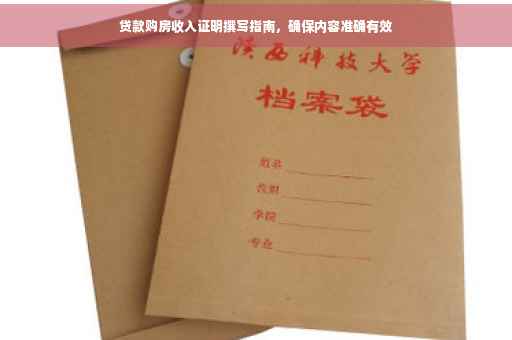 贷款购房收入证明撰写指南，确保内容准确有效
陕西科技大学
档案袋
学院
专业